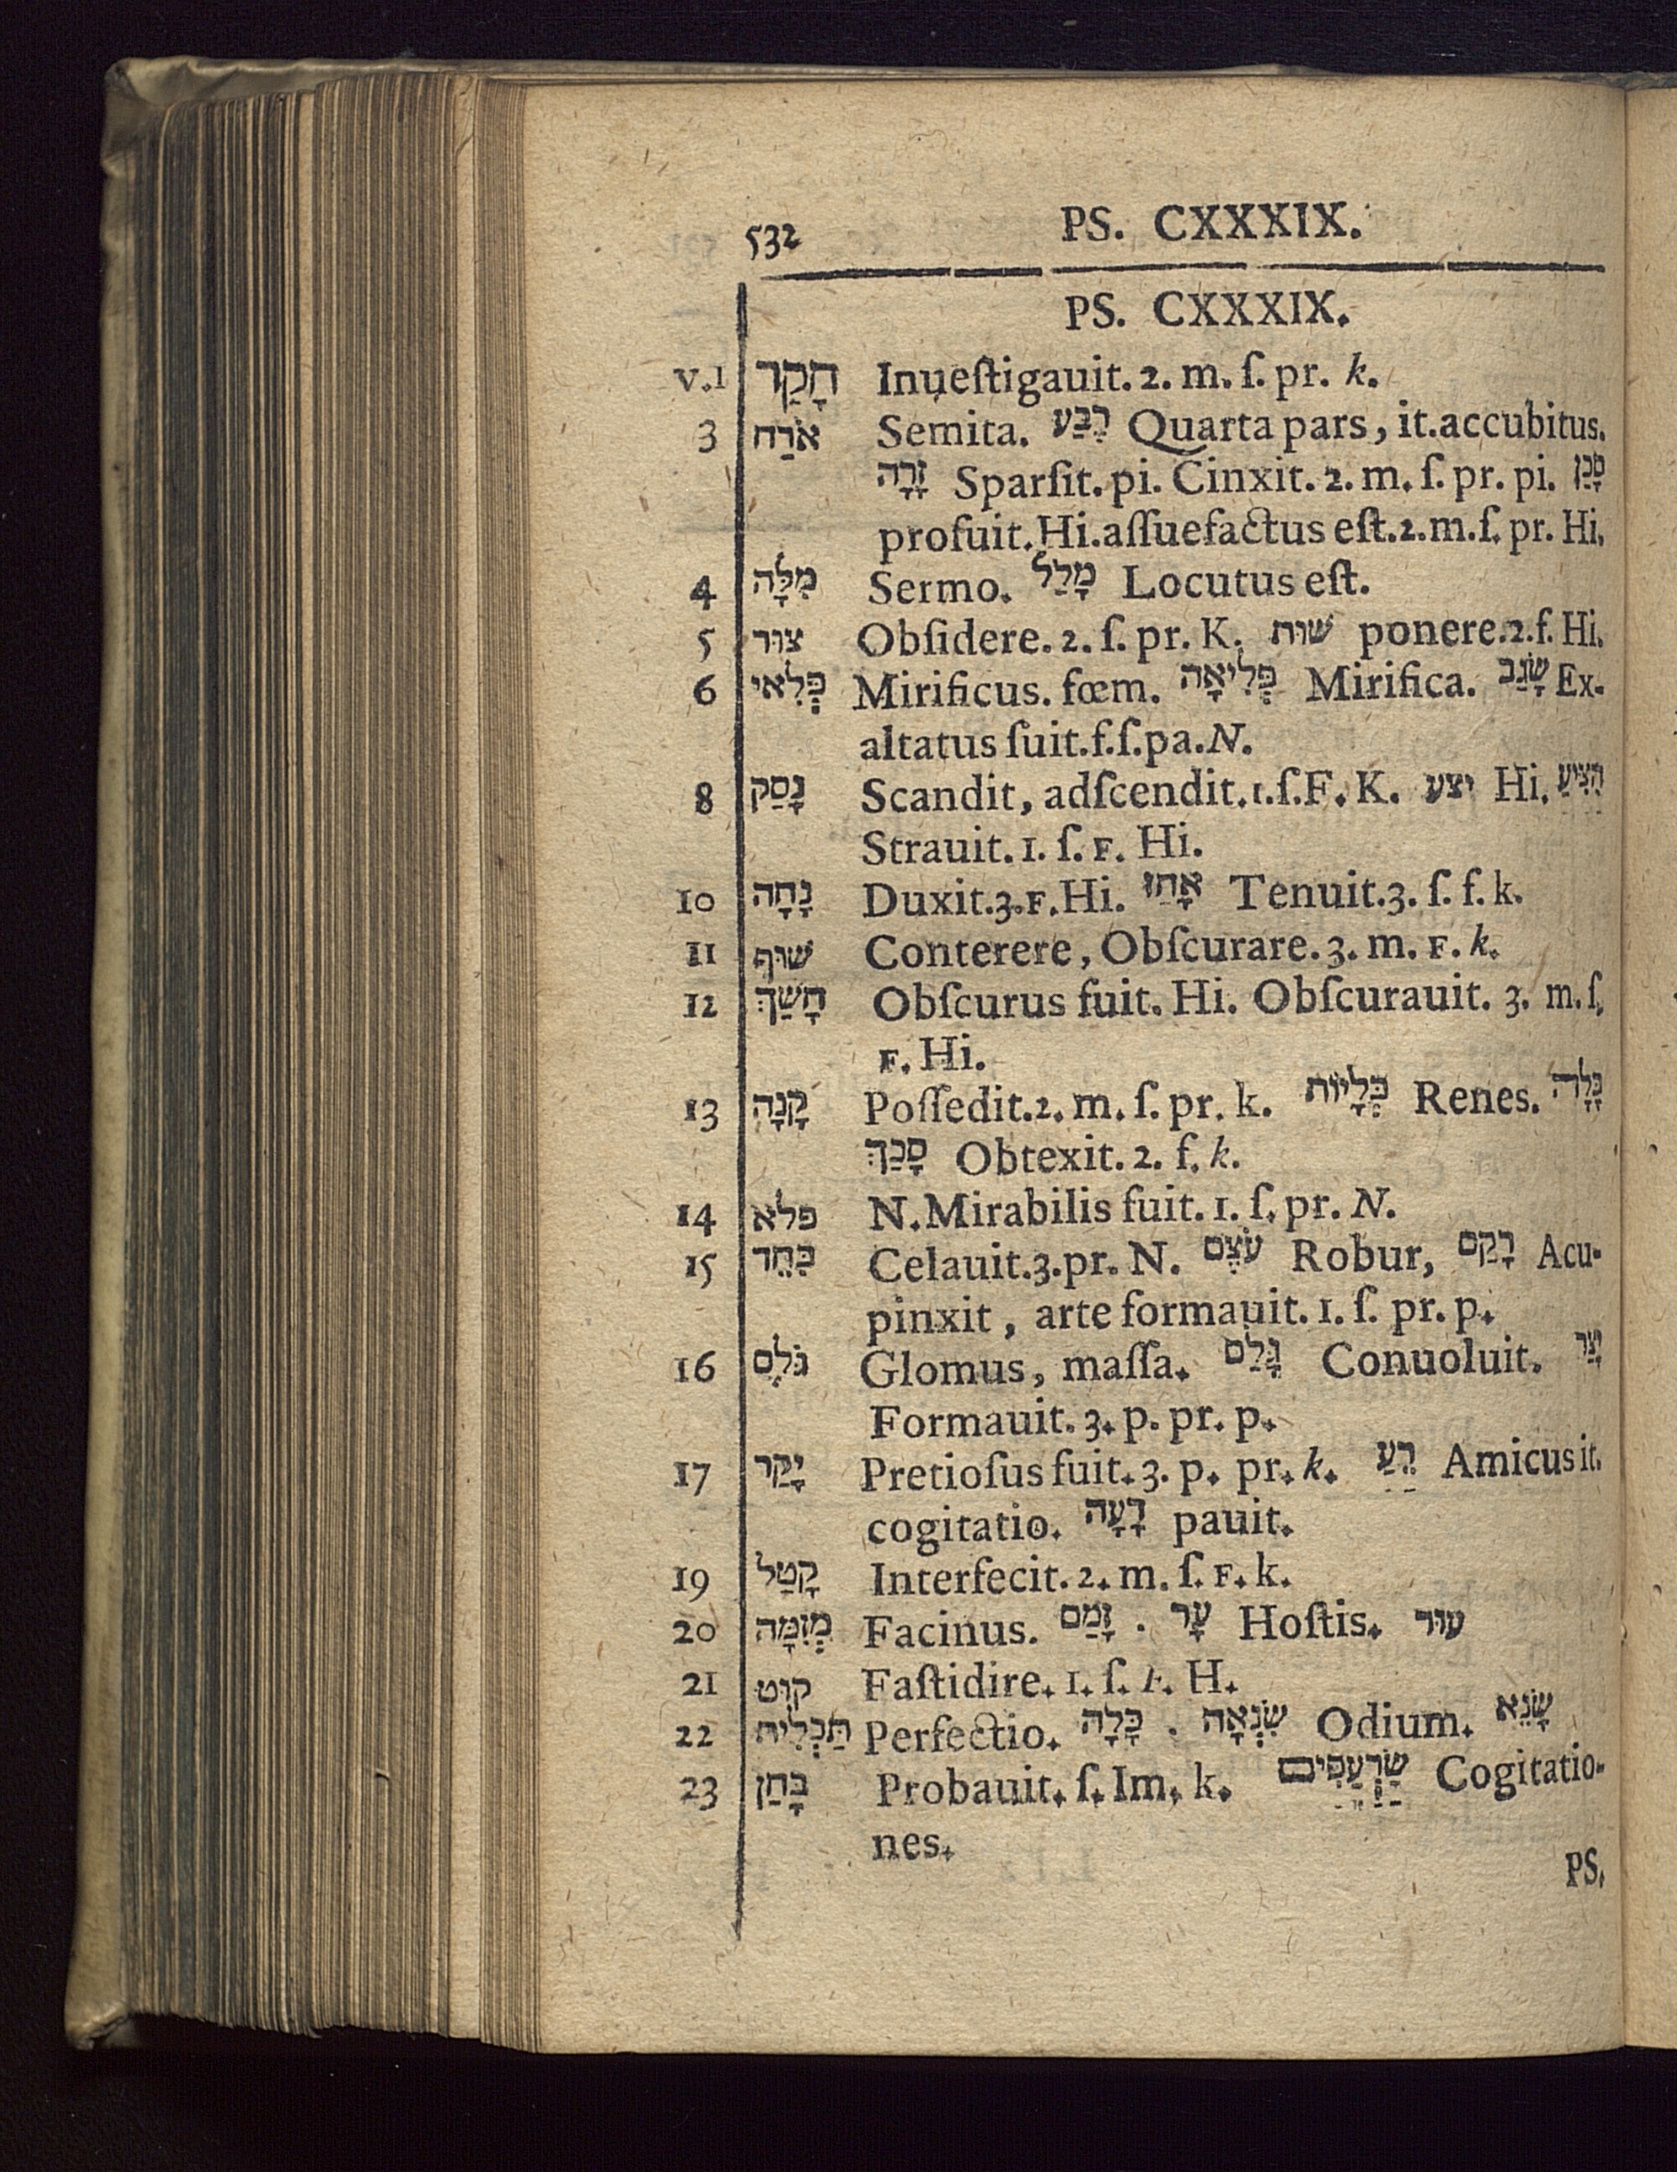 532 PS. CXXXIX.
PS. CXXXIX.
v.1 חָקַר Inueſtigauit. 2. m. ſ. pr. k.
3 אֹרַח Semita. רֶבַע Quarta pars, it. accubitus.
זָרָה Sparſit. pi. Cinxit. 2. m. ſ. pr. pi. סָכַן
profuit. Hi. aſſuefactus eſt. 2. m. ſ. pr. Hi.
4 מִלָּה Sermo. מָלַל Locutus eſt.
5 צוּר Obſidere. 2. ſ. pr. K. שׁוּת ponere. 2. f. Hi.
6 פִּלְאִי Mirificus. fœm. פְּלִיאָה Mirifica. שָׂגַב Ex-
altatus fuit. f. ſ. pa. N.
8 נָסַק Scandit, adſcendit. 1. ſ. F. K. יצע Hi. הִצִּיעַ
Strauit. 1. ſ. F. Hi.
10 נָחָה Duxit. 3. F. Hi. אָחַז Tenuit. 3. ſ. f. k.
11 שׁוּף Conterere, Obſcurare. 3. m. F. k.
12 חָשַׁךְ Obſcurus fuit. Hi. Obſcurauit. 3. m. ſ.
F. Hi.
13 קָנָה Poſſedit. 2. m. ſ. pr. k. כְּלָיוֹת Renes. כָּלָה
סָכַךְ Obtexit. 2. f. k.
14 פלא N. Mirabilis fuit. 1. ſ. pr. N.
15 כָּחֵד Celauit. 3. pr. N. עֹצֶם Robur, רָקַם Acu-
pinxit, arte formauit. 1. ſ. pr. p.
16 גֹּלֶם Glomus, maſſa. גָּלַם Conuoluit. יָצַר
Formauit. 3. p. pr. p.
17 יָקַר Pretioſus fuit. 3. p. pr. k. רֵעַ Amicus it.
cogitatio. רָעָה pauit.
19 קָטַל Interfecit. 2. m. ſ. F. k.
20 מְזִמָּה Facinus. זָמַם . עָר Hoſtis. עוּר
21 קוּט Faſtidire. 1. ſ. F. H.
22 תַּכְלִית Perfectio. כָּלָה . שִׂנְאָה Odium. שָׂנֵא
23 בָּחַן Probauit. ſ. Im. k. שַׂרְעַפִּים Cogitatio-
nes.
PS.